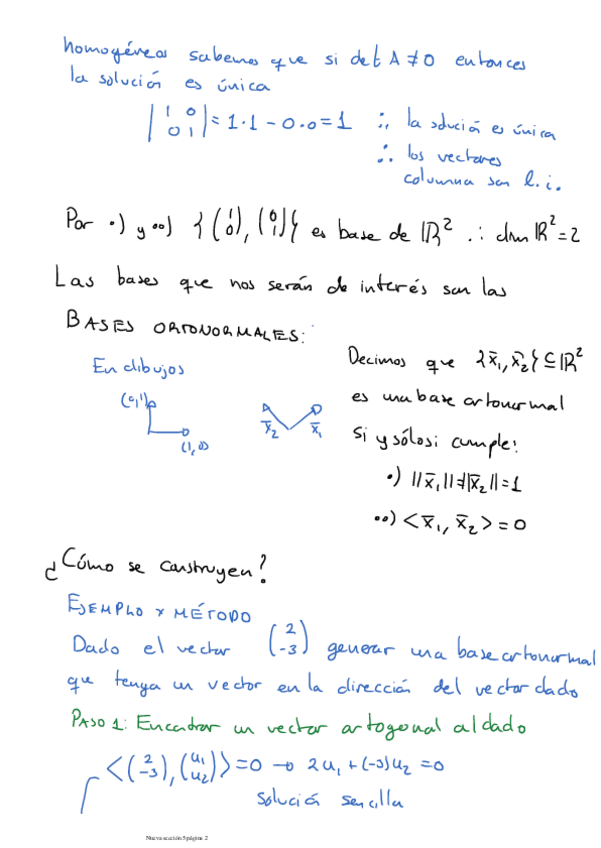 homogéneos sabemos que si det A ≠ 0 entonces
la solución es única
| 1 0 |
| 0 1 | = 1·1 - 0·0 = 1 ∴ la solución es única
∴ los vectores
columna son l.i.
Por •) y ••) {(1 0), (0 1)} es base de ℝ² ∴ dim ℝ² = 2
Las bases que nos serán de interés son las
BASES ORTONORMALES:
En dibujos
(0,1)
(1,0)
x̄₂ x̄₁
Decimos que {x̄₁, x̄₂} ⊆ ℝ²
es una base ortonormal
si y sólo si cumple:
•) ||x̄₁|| = ||x̄₂|| = 1
••) <x̄₁, x̄₂> = 0
¿Cómo se construyen?
EJEMPLO Y MÉTODO
Dado el vector (2 -3) generar una base ortonormal
que tenga un vector en la dirección del vector dado
PASO 1: Encontrar un vector ortogonal al dado
<(2 -3), (u₁ u₂)> = 0 → 2u₁ + (-3)u₂ = 0
solución sencilla
Nueva sección 5 página 2